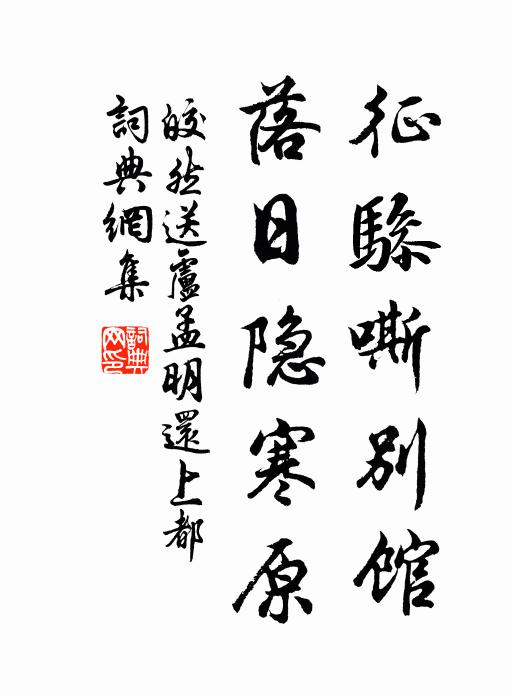 征驂嘶别館
落日隐寒原
皎然送盧孟明還上都
詞典網集
詞典網印